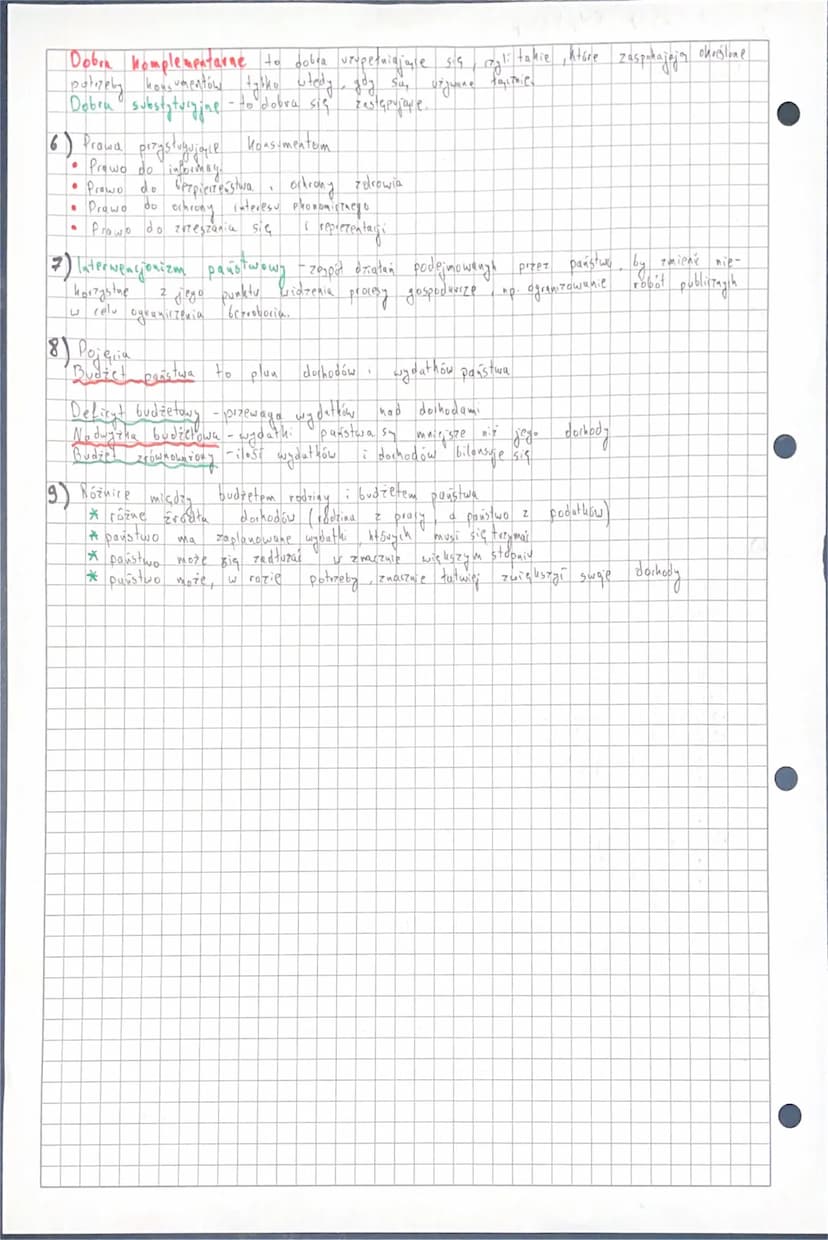 Dobra komplementarne to dobra uzupełniające się, czyli takie, które zaspokajają określone
potrzeby konsumentów tylko wtedy, gdy są używane łącznie.
Dobra substytucyjne - to dobra się zastępujące.
6) Prawa przysługujące konsumentom
• Prawo do informacji
• Prawo do bezpieczeństwa i ochrony zdrowia
• Prawo do ochrony interesu ekonomicznego
• Prawo do zrzeszania się i reprezentacji
7) Interwencjonizm państwowy - zespół działań podejmowanych przez państwo, by zmienić nie-
korzystne z jego punktu widzenia procesy gospodarcze, np. ogranizowanie robót publicznych
w celu ograniczenia bezrobocia.
8) Pojęcia
Budżet państwa to plan dochodów i wydatków państwa
Deficyt budżetowy - przewaga wydatków nad dochodami
Nadwyżka budżetowa - wydatki państwa są mniejsze niż jego dochody
Budżet zrównoważony - ilość wydatków i dochodów bilansuje się
9) Różnice między budżetem rodziny i budżetem państwa
* różne źródła dochodów (rodzina z pracy, a państwo z podatków)
* państwo ma zaplanowane wydatki, których musi się trzymać
* państwo może się zadłużać w znacznie większym stopniu
* państwo może, w razie potrzeby, znacznie łatwiej zwiększyć swoje dochody